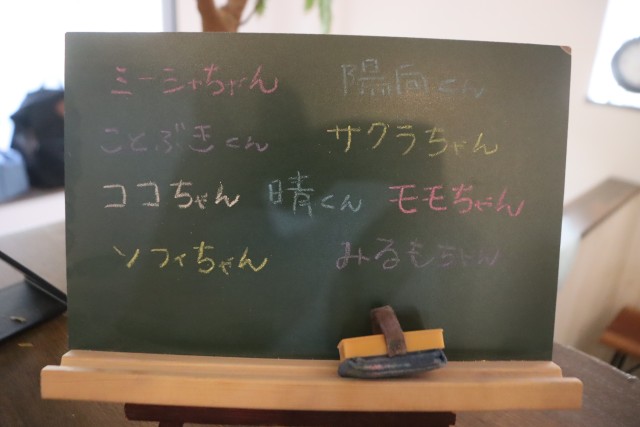 ミーシャちゃん 陽向くん
ことぶきくん サクラちゃん
ココちゃん 晴くん モモちゃん
ソフィちゃん みるもちゃん